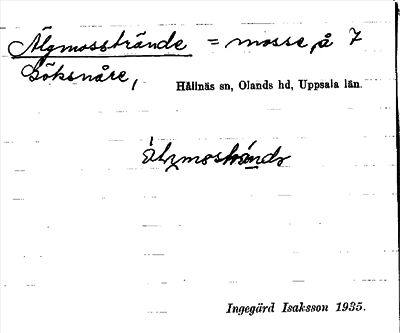 Älgmossbrände = mosse på 7
Böksnåre,
Hållnäs sn, Olands hd, Uppsala län.
Ingegärd Isaksson 1935.